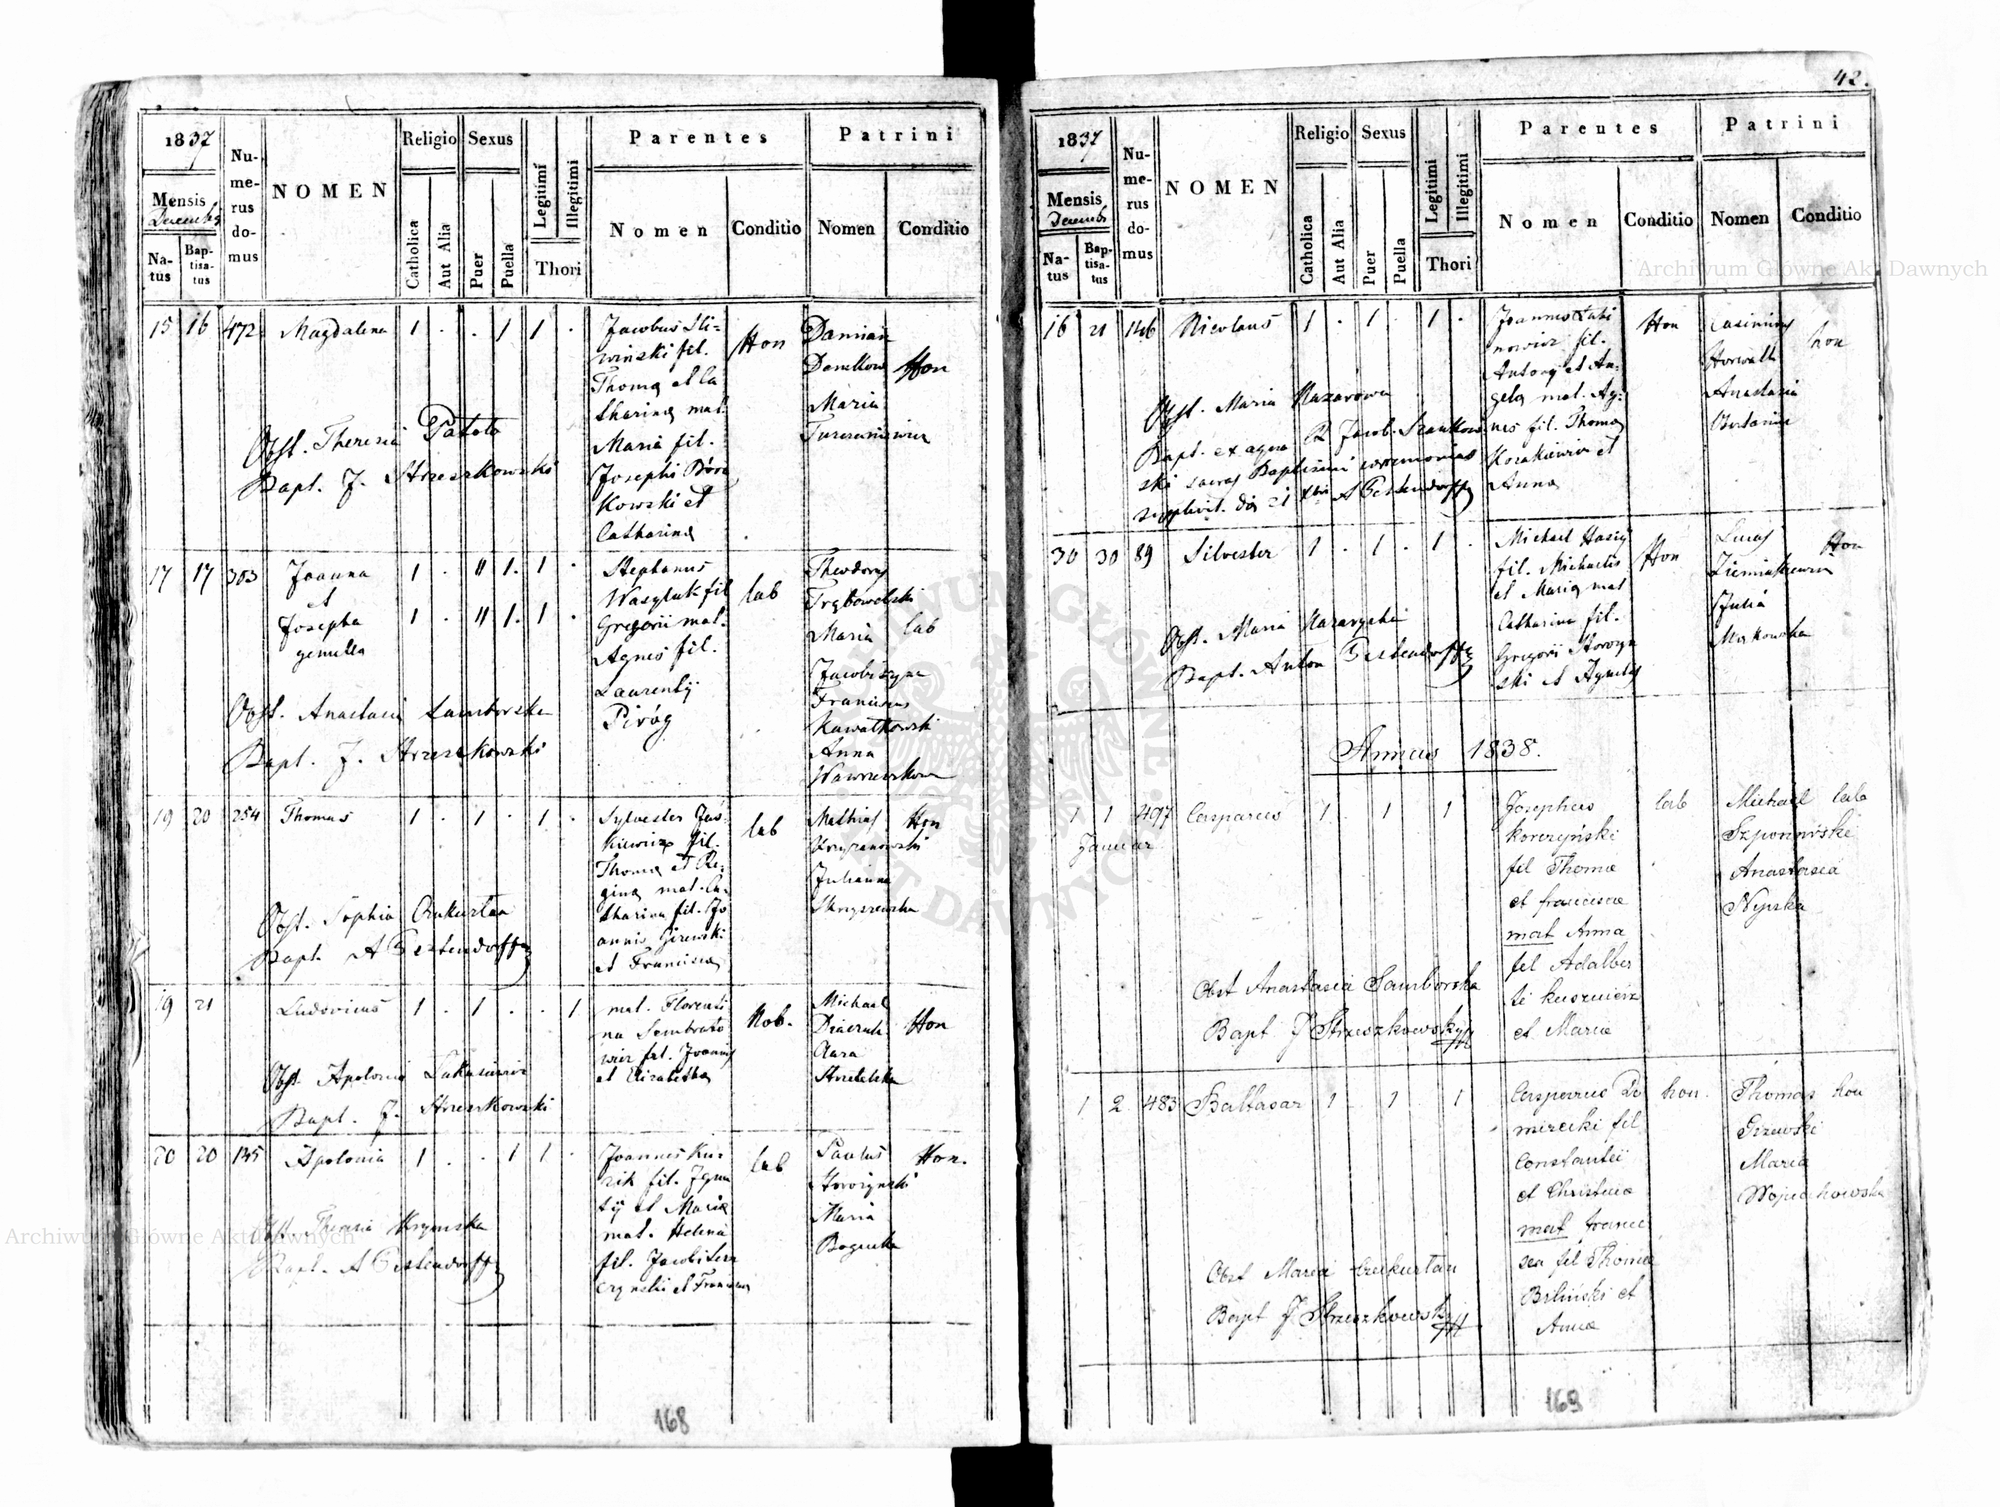 1837
Mensis
Decembris
Natus
Baptisatus
Numerus domus
NOMEN
Religio
Catholica
Aut Alia
Sexus
Puer
Puella
Legitimi
Illegitimi
Thori
Parentes
Nomen
Conditio
Patrini
Nomen
Conditio
15 16 472 Magdalena 1 . . 1 1 .
Jacobus Sli=
winski fil.
Thomæ et Ca
tharinæ mat.
Maria fil.
Josephi
kowski et
Catharinæ
Hon
Damian
Maria
Hon
Obst. Theresia
Bapt. J. Strzeszkowski
17 17 303 Joanna
et
Josepha
gemella
1 . " 1. 1 .
1 . " 1. 1 .
Stephanus
Wasyluk fil
Gregorii mat.
Agnes fil.
Laurentij
Piróg
lab
Theodorus
Trębowelski
Maria
Franciscus
Kawalkowski
Anna
lab
Obst. Anastasia Samborska
Bapt. J. Strzeszkowski
19 20 254 Thomas 1 . 1 . 1 .
Sylvester Jaś
kiewicz fil.
Thomæ et Re-
ginæ mat. Ca-
tharina fil. Jo
annis Gizewski
et Franciscæ
lab
Mathias
Krzyzanowski
Julianna
Skryszewska
Hon
Obst. Sophia Czukurtan
Bapt. A Pestendorffer
19 21 Ludovicus 1 . 1 . . 1
mat. Florenti
na Sembrato
wicz fil. Joannis
et Elizabethæ
Nob.
Michael
Clara
Strzetelska
Hon
Obst. Apolonia Lukasiewicz
Bapt. J. Strzeszkowski
20 20 135 Apolonia 1 . . 1 1 .
Joannes Kus
zik fil. Igna
tij et Mariæ
mat. Helena
fil. Jacobi
czynski et Franciscæ
lab
Paulus
Maria
Hon.
Obst. Theresia Krzywska
Bapt. A Pestendorffer
168
42.
1837
Mensis
Decembr
Natus
Baptisatus
Numerus domus
NOMEN
Religio
Catholica
Aut Alia
Sexus
Puer
Puella
Legitimi
Illegitimi
Thori
Parentes
Nomen
Conditio
Patrini
Nomen
Conditio
16 21 146 Nicolaus 1 . 1 . 1 .
Joannes
nowicz fil.
Antonij et An-
gelæ mat. Ag-
nes fil. Thomæ
et
Annæ
Hon
Casimirus
Horwath
Anastasia
hon
Obst. Maria Nazarowa
Bapt. ex aqua R Jacob. Szankow
ski sacras Baptismi ceremonias
supplevit die 21 Xbris A Pestendorffer
30 30 89 Silvester 1 . 1 . 1 .
Michael Hasij
fil. Michaelis
et Mariæ mat
Catharina fil.
Gregorii
ski et Agnetis
Hon
Lucas
Julia
Markowska
Hon
Obst. Maria Nazarycka
Bapt. Anton Pestendorffer
Annus 1838.
1 1 497 Casparus 1 1 1
Januar
Josephus
Korczyński
fil Thomæ
et franciscæ
mat Anna
fil Adalber
ti Kuszniesz
et Mariæ
lab
Michael
Szponarski
Anastasia
Nyrska
lab
Obst Anastasia Samborska
Bapt J Strzeszkowsky
1 2 483 Baltasar 1 1 1
Casparus Do
mirecki fil
Constantii
et Christinæ
mat franci
sca fil Thomæ
Biliński et
Annæ
hon.
Thomas
Gizewski
Maria
Wojciechowska
hon
Obst Maria Czukurtan
Bapt J Strzeszkowsky
169
Archiwum Główne Akt Dawnych
Archiwum Główne Akt Dawnych
ARCHIWUM GŁÓWNE AKT DAWNYCH